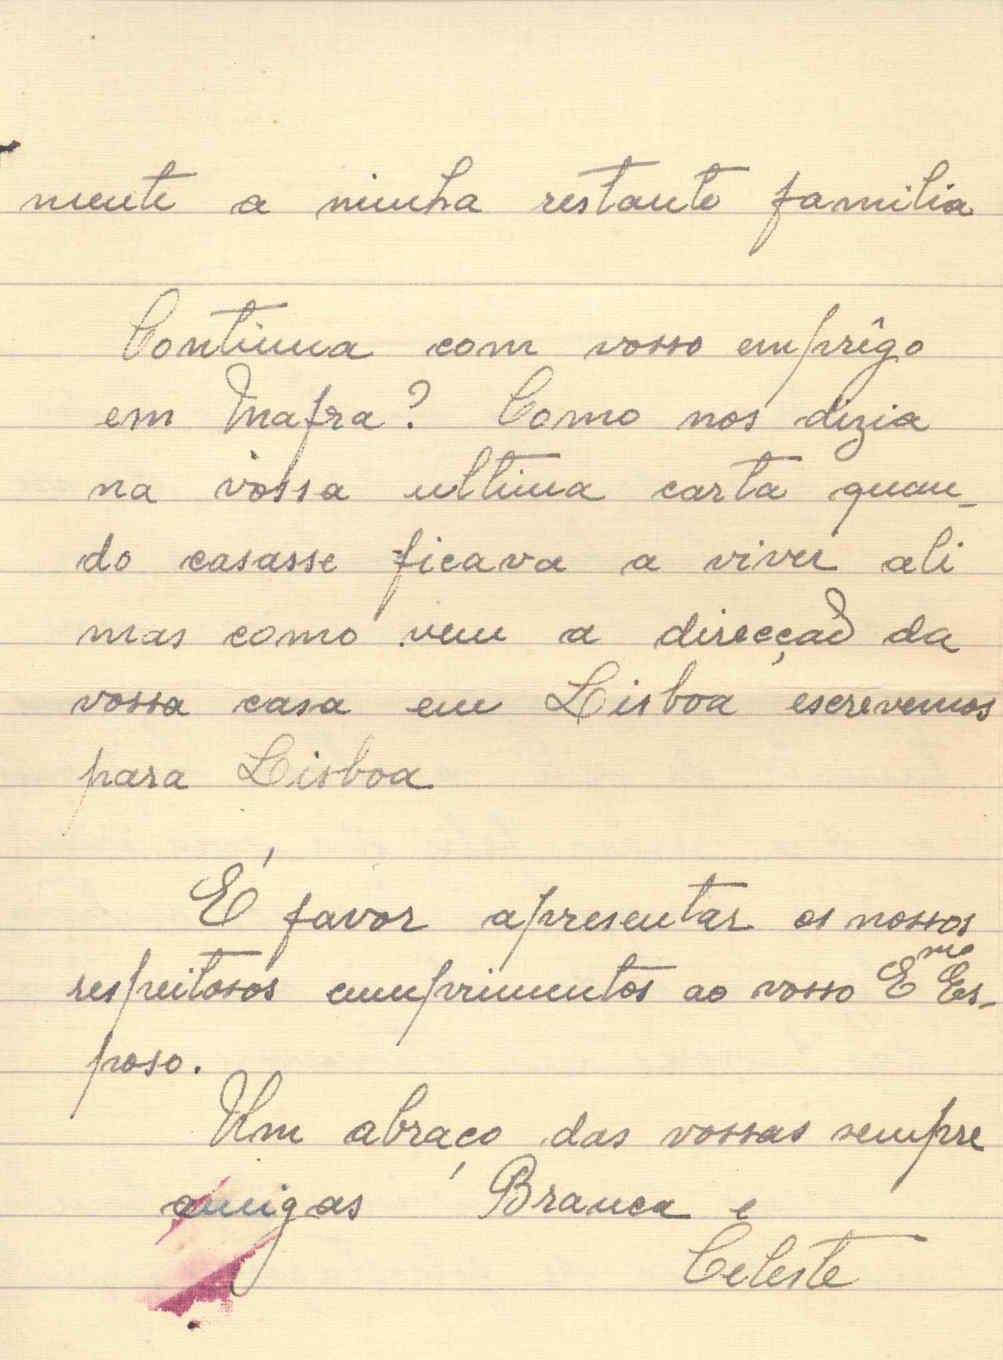 mente a minha restante familia
Continua com vosso emprêgo
em Mafra? Como nos dizia
na vossa ultima carta quan-
do casasse ficava a viver ali
mas como vem a direcçaõ da
vossa casa em Lisboa escrevemos
para Lisboa
É favor apresentar os nossos
respeitosos cumprimentos ao vosso Emo Es-
poso.
Um abraço das vossas sempre
amigas Branca e
Celeste